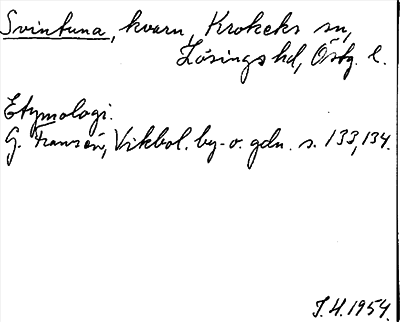 Svintuna, kvarn, Krokeks sn,
Lösings hd, Östg. l.
Etymologi.
G. Franzén, Vikbol. by- o. gdn. s. 133, 134.
J.H. 1954.